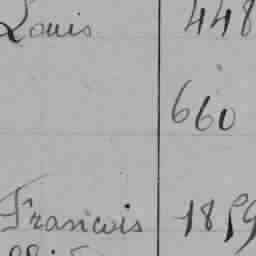 Louis 448
660
Francois 1859